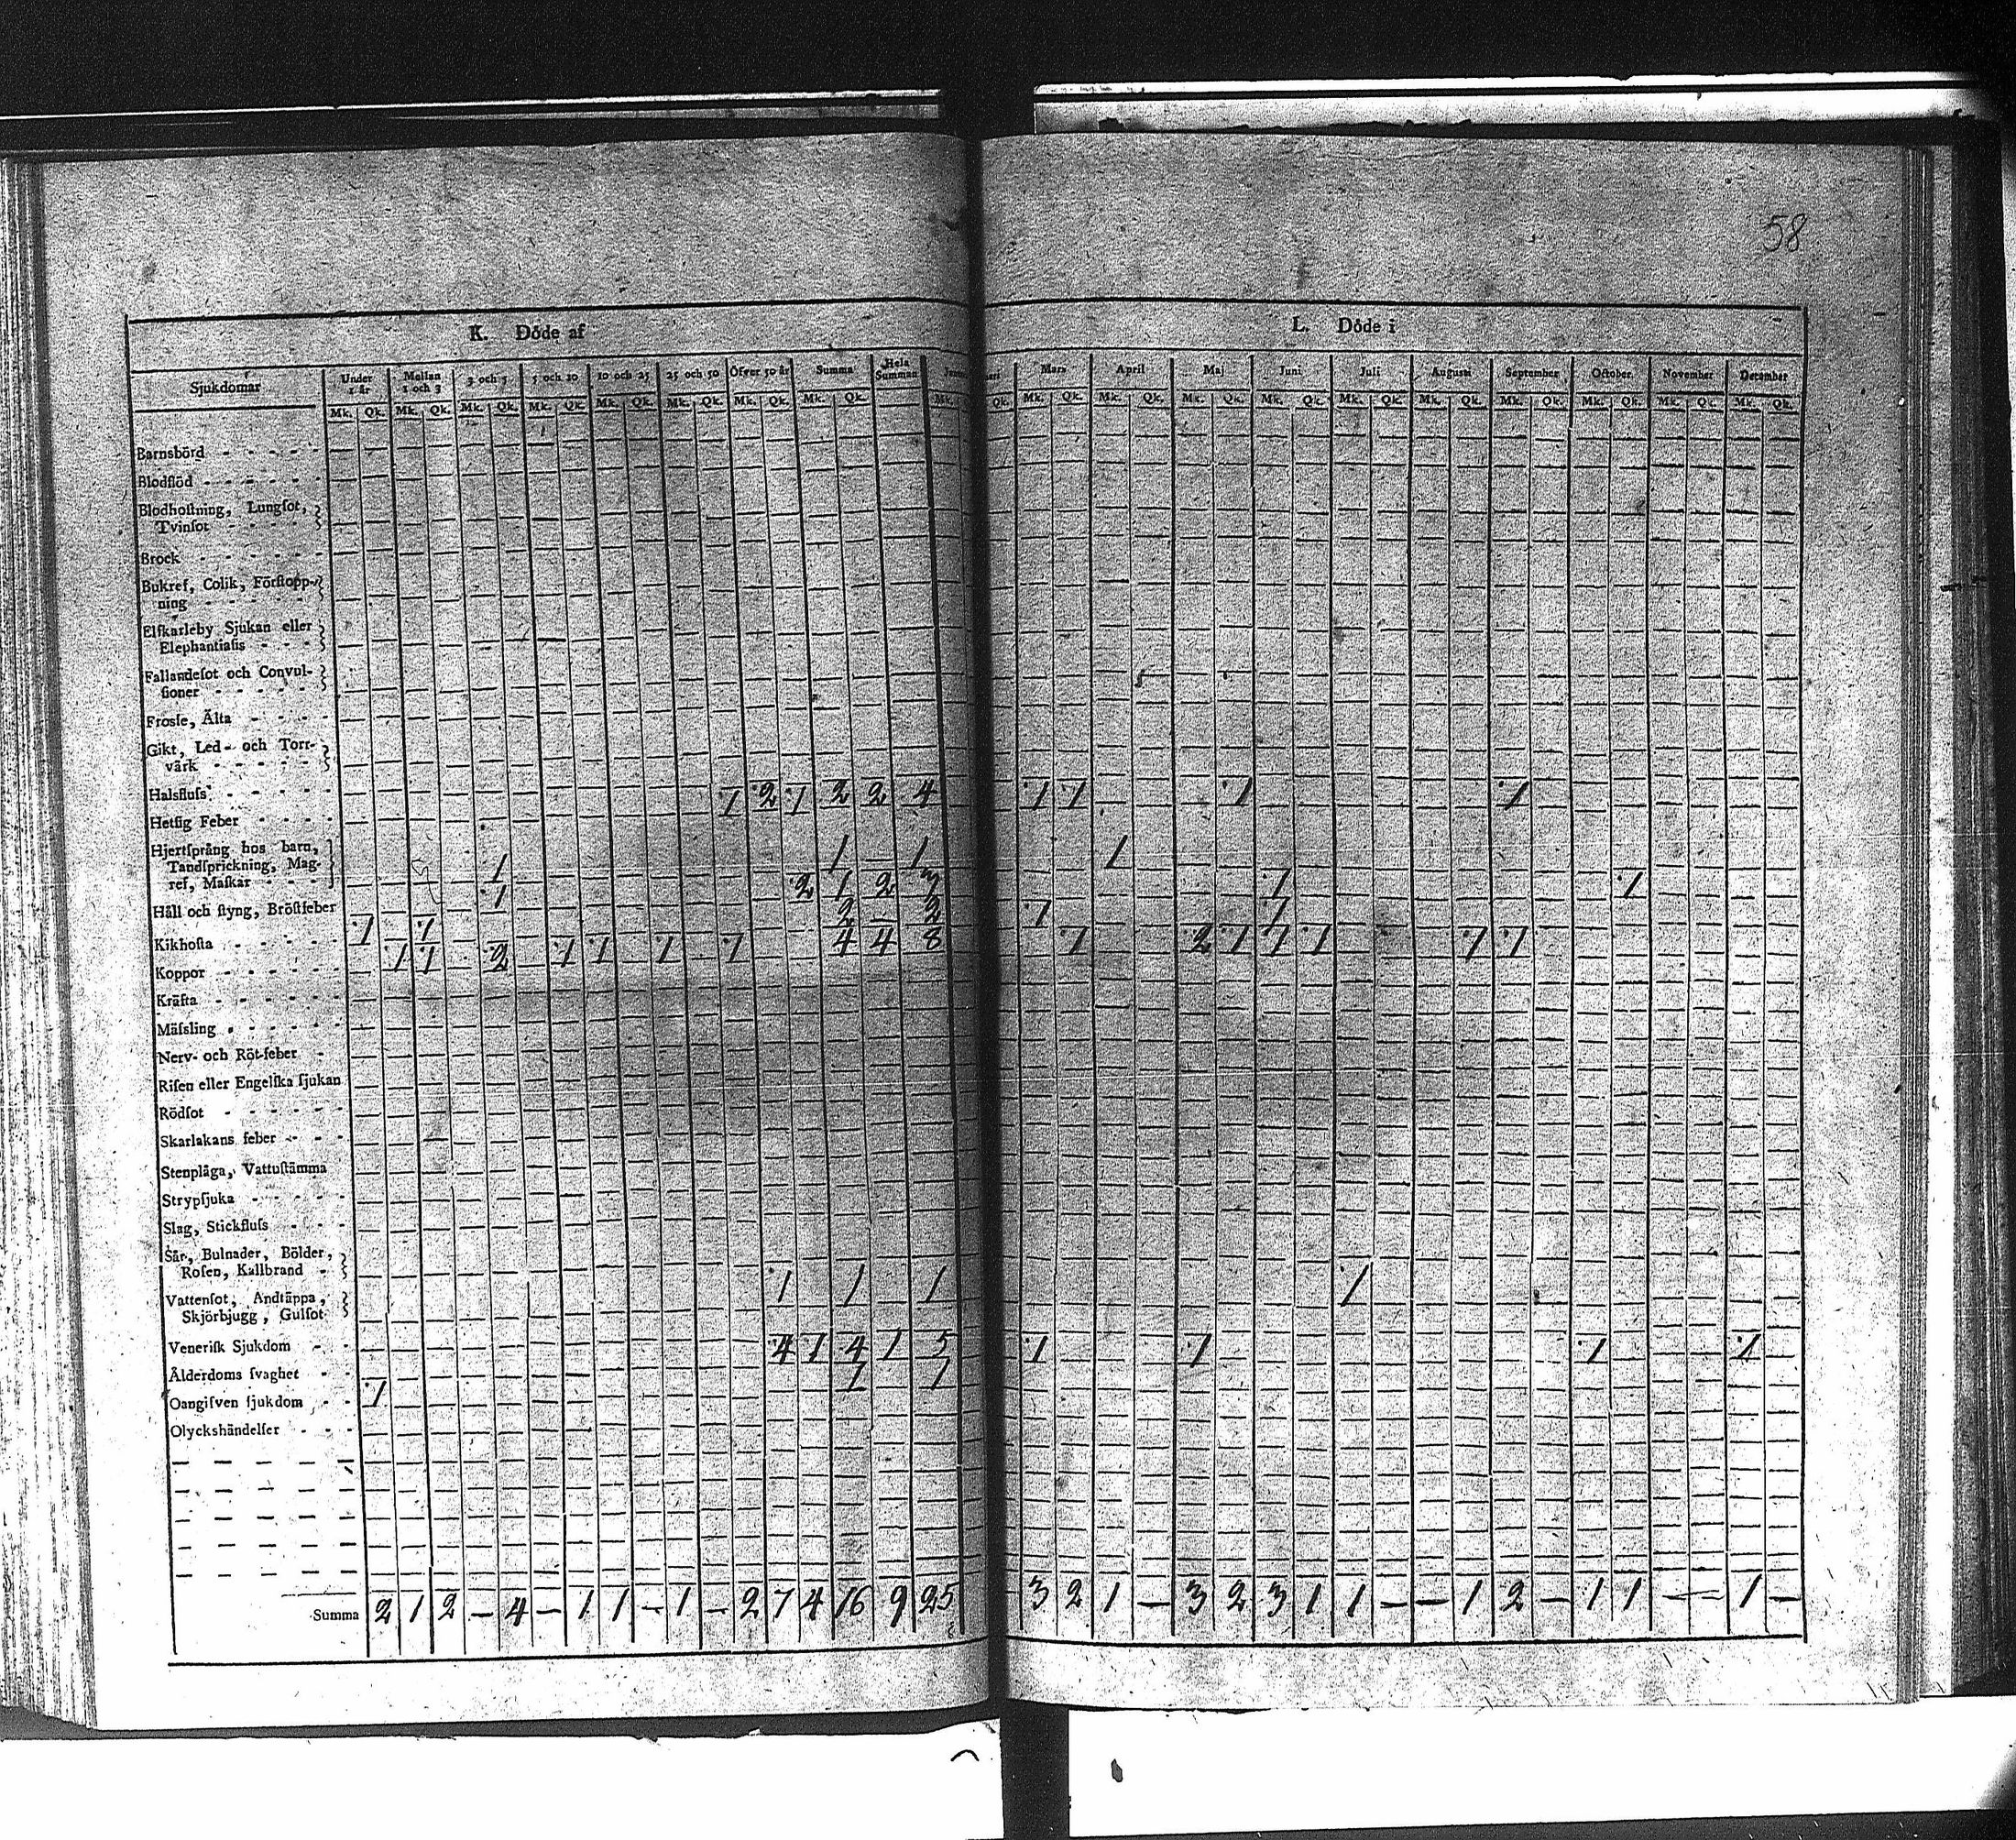 58
K. Döde af
L. Döde i
Sjukdomar Under 1 år Mellan 1 och 3 3 och 5 5 och 10 10 och 25 25 och 50 Öfver 50 år Summa Hela Summan
Mars April Maj Juni Juli Augusti September October November December
Mk. Qk. Mk. Qk. Mk. Qk. Mk. Qk. Mk. Qk. Mk. Qk. Mk. Qk. Mk. Qk. Mk.
Qk. Mk. Qk. Mk. Qk. Mk. Qk. Mk. Qk. Mk. Qk. Mk. Qk. Mk. Qk. Mk. Qk. Mk. Qk. Mk. Qk.
Barnsbörd
Blodflöd
Blodhoſtning, Lungſot,
Tvinſot
Brock
Bukref, Colik, Förſtopp-
ning
Elfkarleby Sjukan eller
Elephantiaſis
Fallandeſot och Convul-
ſioner
Frosſe, Älta
Gikt, Led- och Torr-
värk
Halsfluſs 1 2 1 2 2 4 1 1 1 1
Hetſig Feber
Hjertſprång hos barn,
Tandſprickning, Mag-
ref, Maſkar 1 1 1 1
Håll och ſtyng, Bröſtfeber 1 2 1 2 3 1 1
Kikhoſta 1 1 2 2 1 1
Koppor 1 1 2 1 1 1 1 4 4 8 1 2 1 1 1 1 1
Kräfta
Mäſsling
Nerv- och Röt-feber
Riſen eller Engelſka ſjukan
Rödſot
Skarlakans feber
Stenplåga, Vattuſtämma
Strypſjuka
Slag, Stickfluſs
Sår, Bulnader, Bölder,
Roſen, Kallbrand
Vattenſot, Andtäppa,
Skjörbjugg, Gulſot 1 1 1 1
Veneriſk Sjukdom 4 1 4 1 5 1 1 1 1
Ålderdoms ſvaghet 1 1
Oangifven ſjukdom 1
Olyckshändelſer
Summa 2 1 2 — 4 — 1 1 — 1 — 2 7 4 16 9 25 3 2 1 — 3 2 3 1 1 — — 1 2 — 1 1 — — 1 —